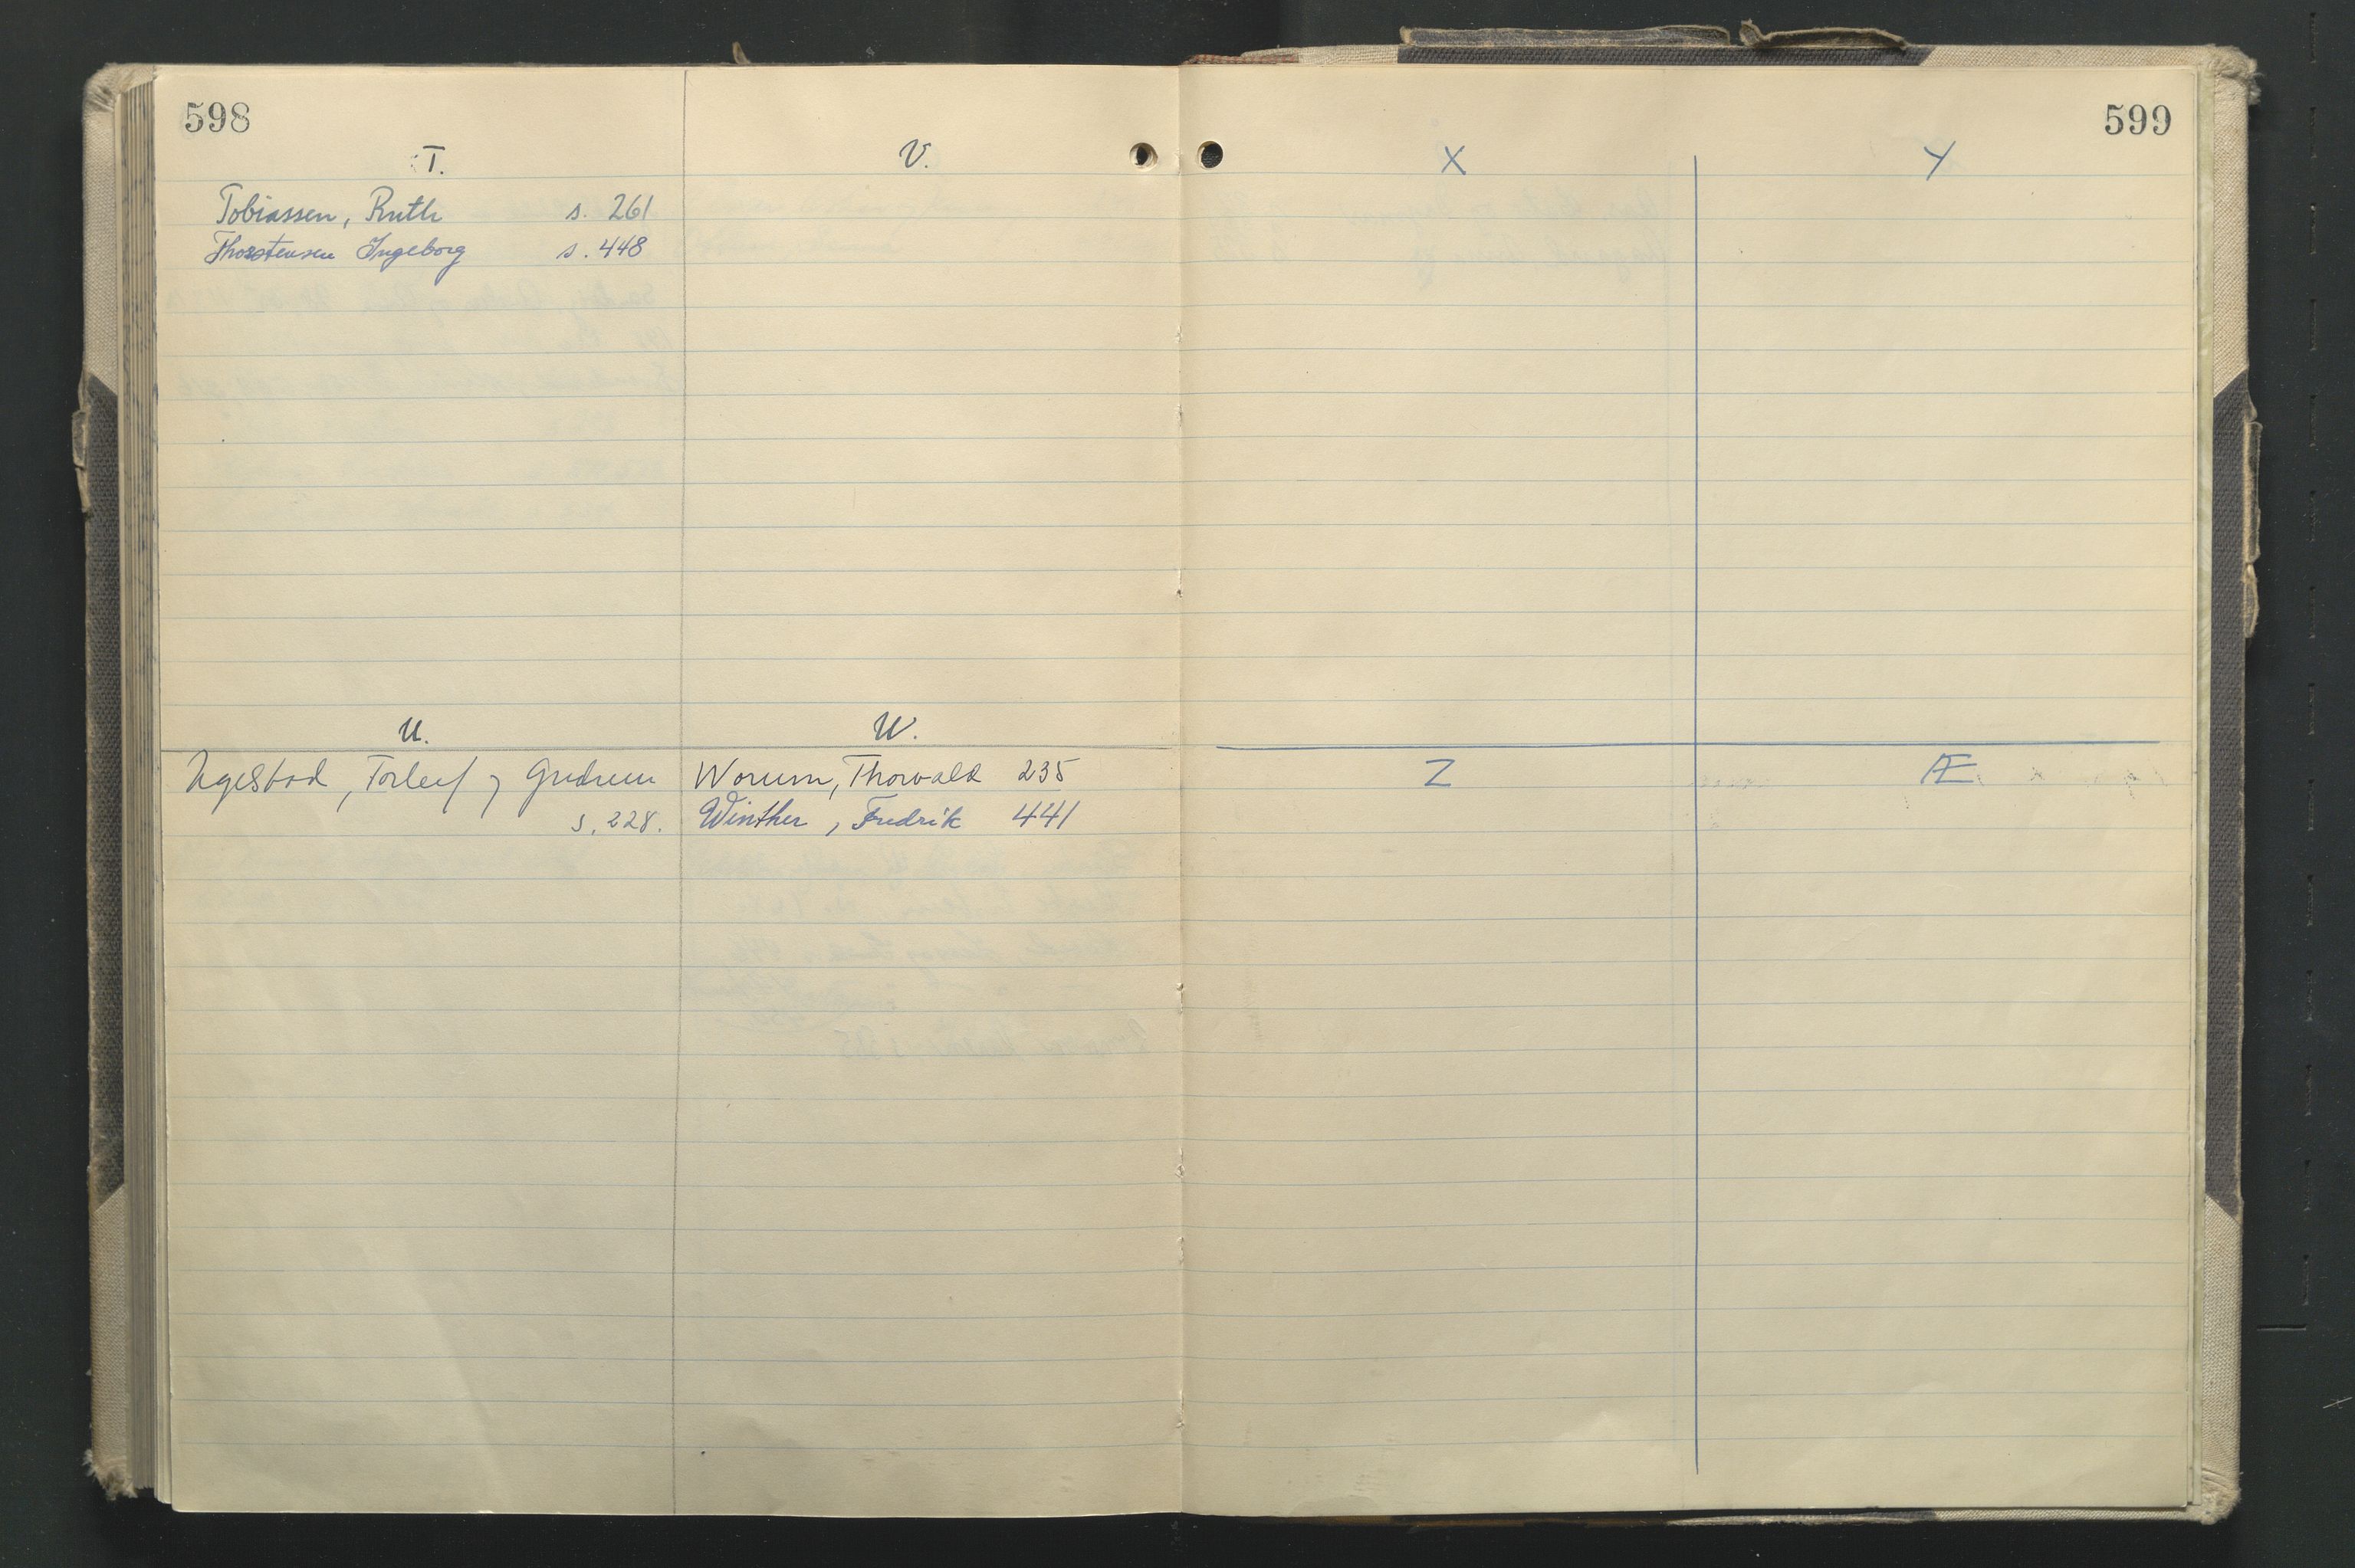 598
T.
Tobiassen, Ruth s. 261
Thorstensen Ingeborg s. 448
V.
U.
Ugelstad, Torleif og Gudrun
s. 228.
W.
Worum, Thorvald 235
Winther, Fredrik 441
599
X
Y
Z
Æ